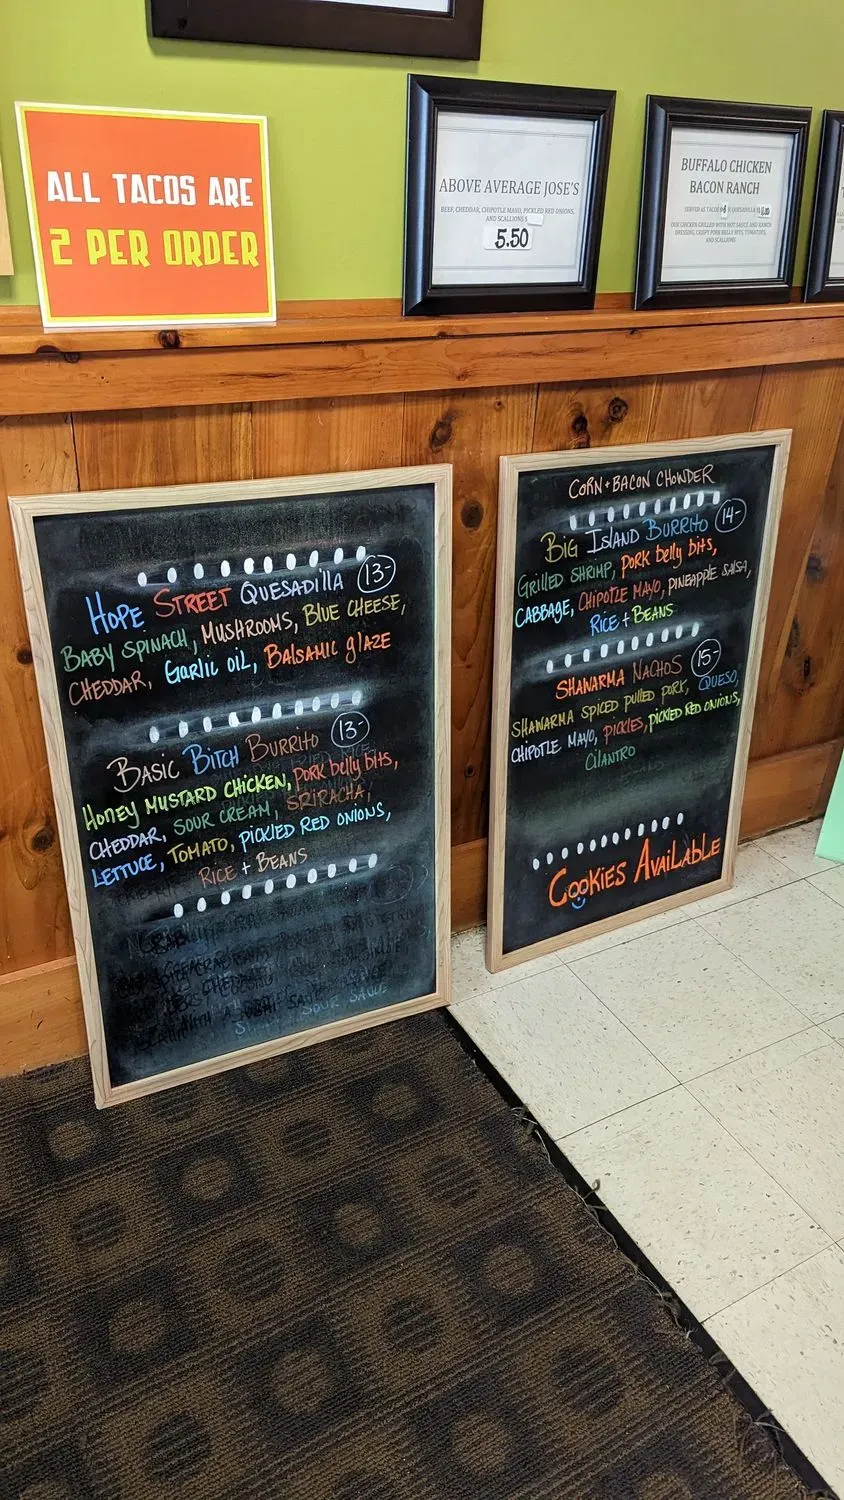 ALL TACOS ARE
2 PER ORDER
ABOVE AVERAGE JOSE'S
BEEF, CHEDDAR, CHIPOTLE MAYO, PICKLED RED ONIONS,
AND SCALLIONS $
5.50
BUFFALO CHICKEN
BACON RANCH
SERVED AS TACOS
OUR CHICKEN GRILLED WITH HOT SAUCE AND RANCH
DRESSING, CRISPY PORK BELLY BITS, TOMATOES,
AND SCALLIONS
HOPE STREET QUESADILLA 13-
BABY SPINACH, MUSHROOMS, BLUE CHEESE,
CHEDDAR, GARLIC OIL, BALSAMIC GLAZE
BASIC BITCH BURRITO 13-
HONEY MUSTARD CHICKEN, PORK BELLY BITS,
CHEDDAR, SOUR CREAM, SRIRACHA,
LETTUCE, TOMATO, PICKLED RED ONIONS,
RICE + BEANS
SOUR SAUCE
CORN + BACON CHOWDER
BIG ISLAND BURRITO 14-
GRILLED SHRIMP, PORK BELLY BITS,
CABBAGE, CHIPOTLE MAYO, PINEAPPLE SALSA,
RICE + BEANS
SHAWARMA NACHOS 15-
SHAWARMA SPICED PULLED PORK, QUESO,
CHIPOTLE MAYO, PICKLES, PICKLED RED ONIONS,
CILANTRO
COOKIES AVAILABLE